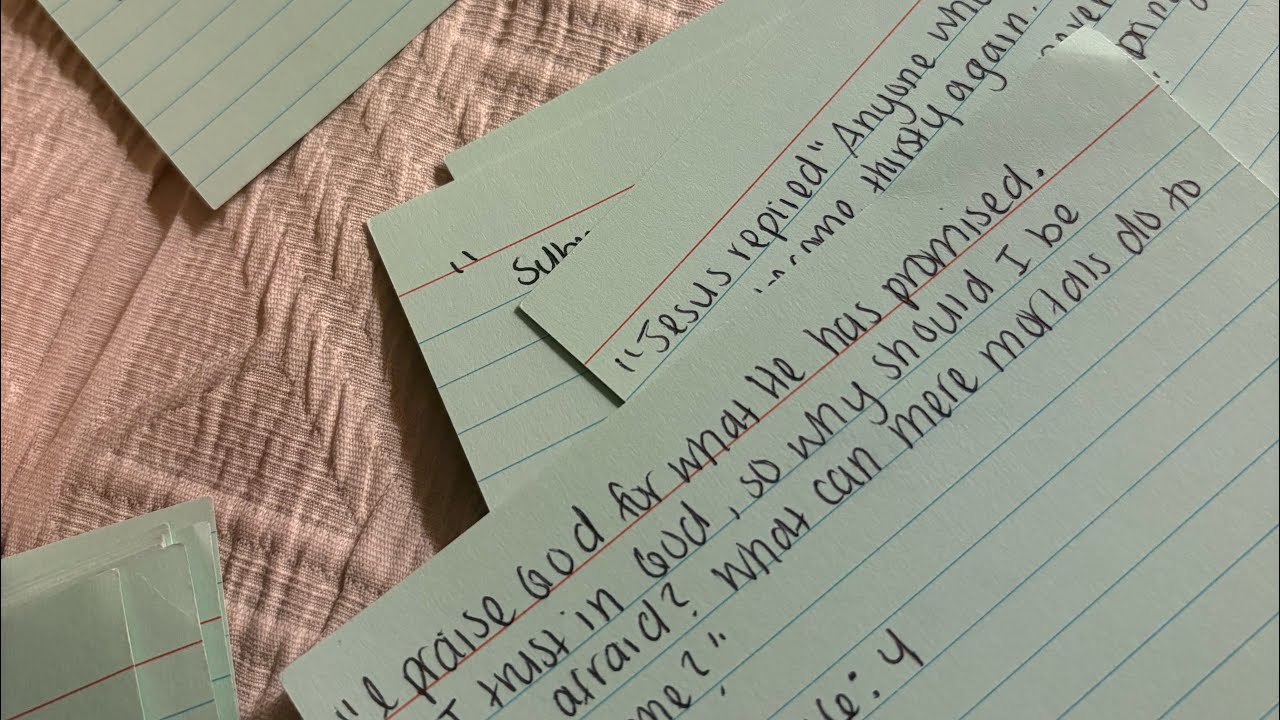 "
"Jesus replied "Anyone who
thirsty again.
"I praise God for what He has promised.
I trust in God, so why should I be
afraid? What can mere mortalls do to
me?"
:4